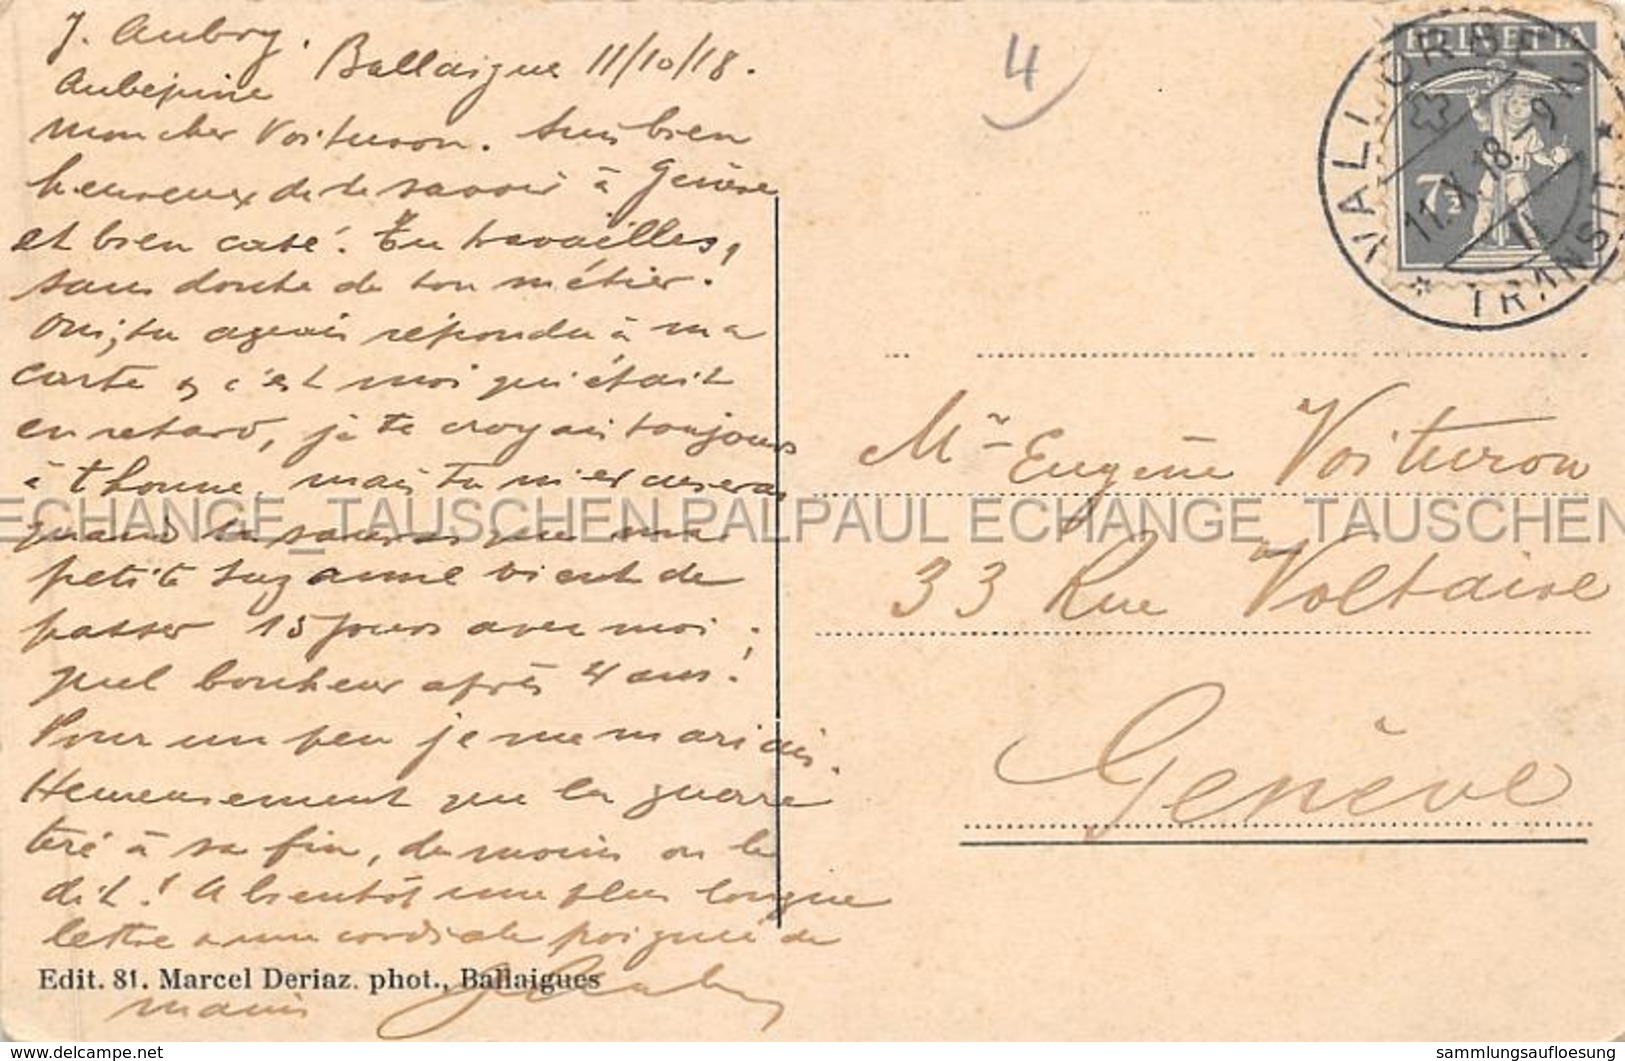 J. Aubry.
Aubépine Ballaigue 11/10/18.
Mon cher Voituron. Suis bien
heureux de te savoir à Genève
et bien casé. Tu travailles,
sans doute de ton métier.
Oui, tu avais répondu à ma
carte & c'est moi qui était
en retard, je te croyais toujours
à Thonne, mais tu m'excuseras
quand tu sauras que ma
petite Suzanne vient de
passer 15 jours avec moi.
quel bonheur après 4 ans!
Pour un peu je me mariais.
Heureusement que la guerre
tire à sa fin, du moins on le
dit! A bientôt une plus longue
lettre & une cordiale poignée de
main J. Aubry
Edit. 81. Marcel Deriaz. phot., Ballaigues
4
HELVETIA
7½
VALLORBE
11.X.18.-9
TRANSIT
Mr Eugène Voituron
33 Rue Voltaire
Genève
ECHANGE_TAUSCHEN PALPAUL ECHANGE_TAUSCHEN
www.delcampe.net
sammlungsaufloesung